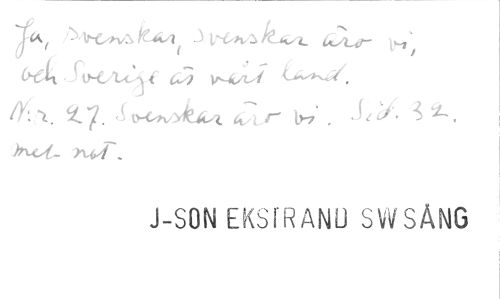 Ja, svenskar, svenskar äro vi,
och Sverige är vårt land.
N:r. 27. Svenskar äro vi. Sid. 32.
mel- not.
J-SON EKSTRAND SW SÅNG